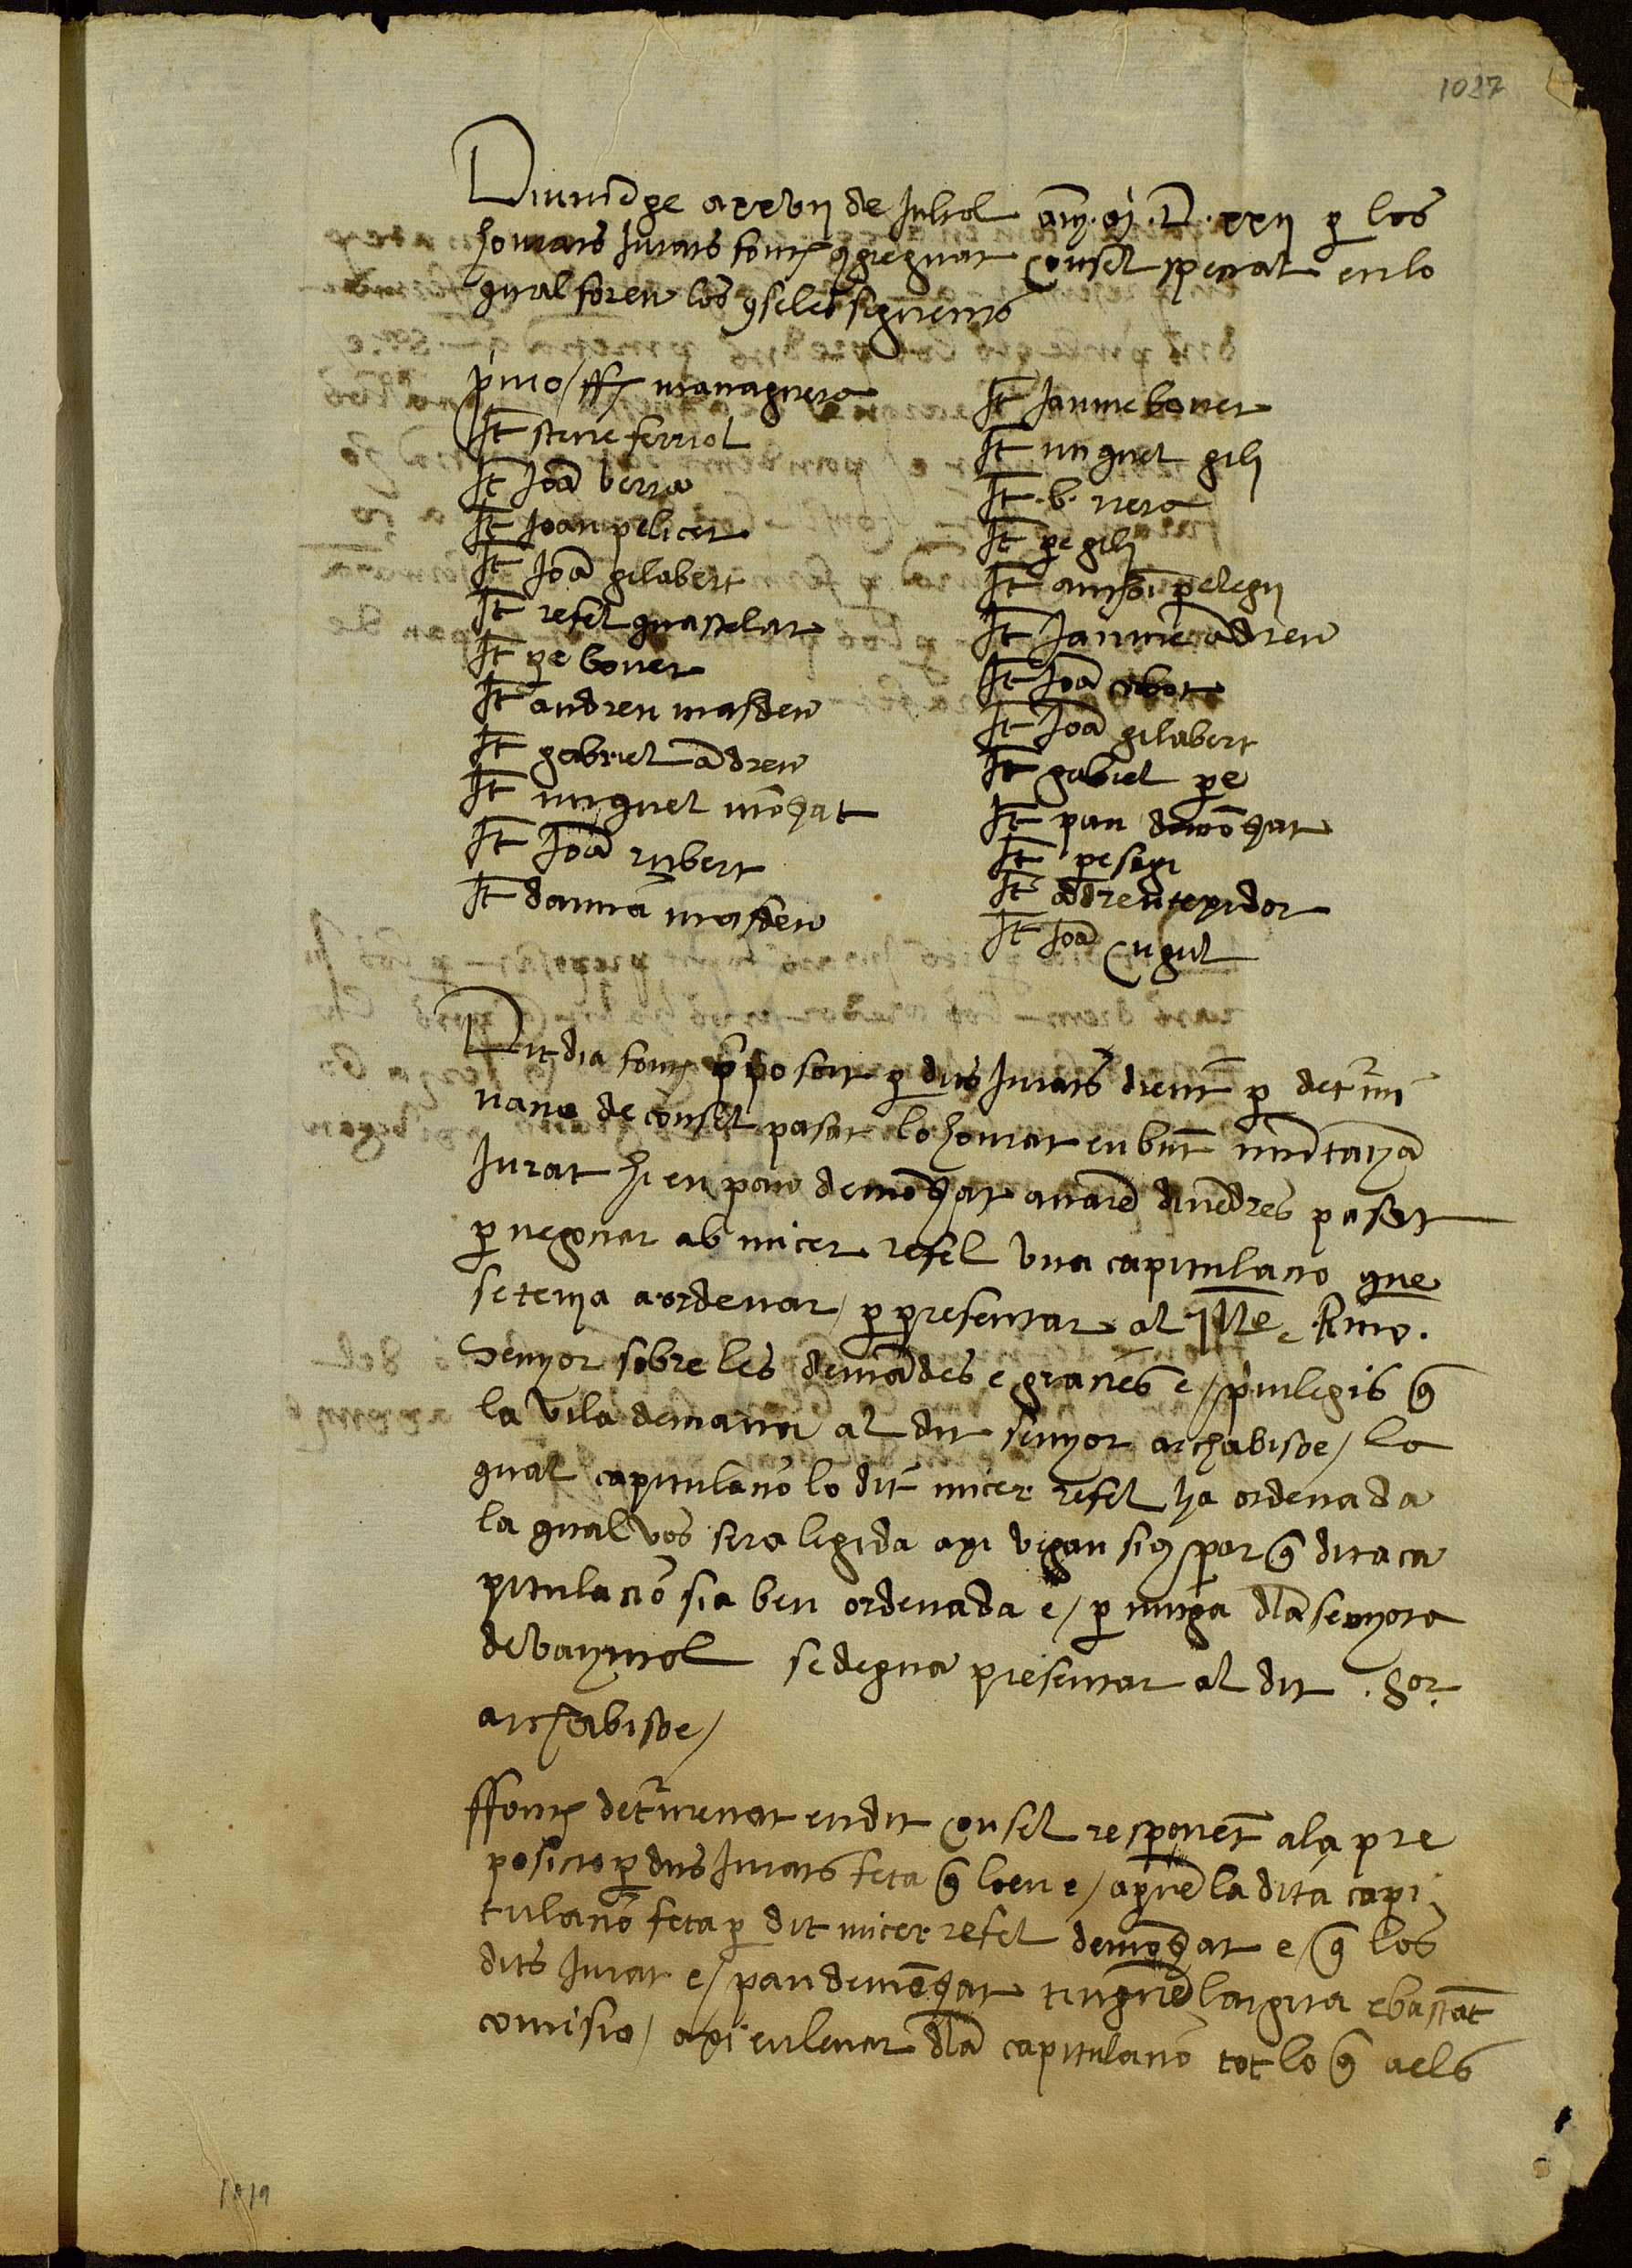 1027
Diumẽge a xxvij de Juliol any .M.D.xxij p los
honrats Jurats fonch cõgreguat Consel spetial en lo
qual foren los cõselés seguents
pmo / ffç managuera
It steue ferriol
It Joã verra
It Joan pelicer
It Joã gilabert
It rafel guastelar
It pe bover
It andreu masdeu
It gabriel ãdreu
It miquel mõҫat
It Joã rubert
It damiã masdeu
It Jaume bover
It miquel gili
It .b. riera
It pe gili
It anthoni pelegri
It Jaume ãdreu
It Joã
It Joã gilabert
It gabriel pere
It pau de mõçat
It pe
It ãdreu texidor
It Joã Cugul
Dit dia fonch pposat p dits Jurats dient p detmi
nacio de consel pasat lo honrat en bnt mũtanyã
Jurat hi en pau de mõçat anarẽ divẽdres pasat
p negociar ab micer rafel vna capitulacio que
se tenia a ordenar / p presentar al Ille e Rmo.
Senyor sobre les demãdes e gracies e / privilegis q
la vila demana al dit senyor archabisbe / la
qual capitulacio lo dit micer rafel ha ordenada
la qual vos sera legida axi vegan si per q dita ca
pitulacio sia ben ordenada e / p miga dla senyora
de vanymol se degua presentar al dit .Sor.
archabisbe /
ffonch detmenat en dit Consel responẽt a la pre
posicio p dits Jurats feta q loen e / aprovẽ la dita capi
tulacio feta p dit micer rafel de mõçat e / q los
dits Jurat e / pau de mõçat tinguẽ largua e bastãt
comisio / axi en levar dla capitulacio tot lo q a els
1019